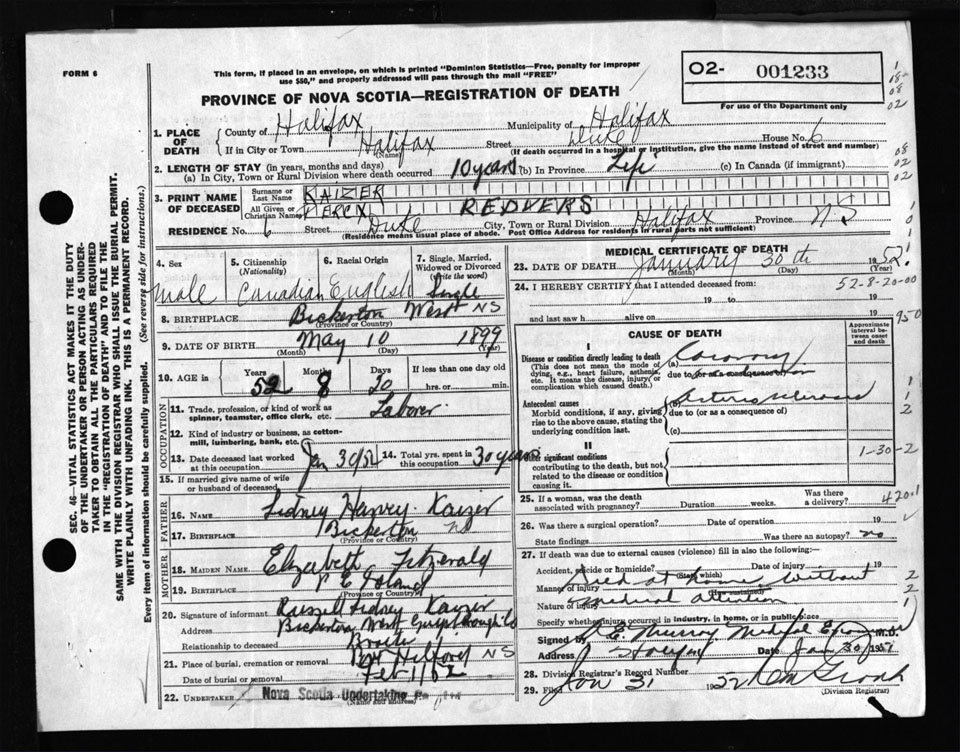 FORM 6
This form, if placed in an envelope, on which is printed "Dominion Statistics—Free, penalty for improper
use $50," and properly addressed will pass through the mail "FREE"
O2- 001233
For use of the Department only
PROVINCE OF NOVA SCOTIA—REGISTRATION OF DEATH
1. PLACE OF DEATH
County of Halifax Municipality of Halifax
If in City or Town Halifax Street Duke House No. 6
(Name) (If death occurred in a hospital or institution, give the name instead of street and number)
2. LENGTH OF STAY (in years, months and days)
(a) In City, Town or Rural Division where death occurred 10 years (b) In Province Life (c) In Canada (if immigrant)
3. PRINT NAME OF DECEASED
Surname or Last Name KAIZER
All Given or Christian Names PERCY REDVERS
RESIDENCE No. 6 Street Duke City, Town or Rural Division Halifax Province N.S
(Residence means usual place of abode. Post Office Address for residents in rural parts not sufficient)
4. Sex
male
5. Citizenship
(Nationality)
Canadian
6. Racial Origin
English
7. Single, Married,
Widowed or Divorced
(Write the word)
Single
8. BIRTHPLACE Bickerton West NS
(Province or Country)
9. DATE OF BIRTH May 10 1899
(Month) (Day) (Year)
10. AGE in Years Months Days If less than one day old
52 8 20 hrs. or min.
OCCUPATION
11. Trade, profession, or kind of work as
spinner, teamster, office clerk, etc. Laborer
12. Kind of industry or business, as cotton-
mill, lumbering, bank, etc.
13. Date deceased last worked
at this occupation Jan 30/52
14. Total yrs. spent in
this occupation 30 years
15. If married give name of wife
or husband of deceased
FATHER
16. NAME Sidney Harvey Kaizer
17. BIRTHPLACE Bickerton NS
(Province or Country)
MOTHER
18. MAIDEN NAME Elizabeth Fitzgerald
19. BIRTHPLACE P E Island
(Province or Country)
20. Signature of informant Russell Sidney Kaizer
Address Bickerton West
Relationship to deceased
21. Place of burial, cremation or removal Hilford NS
Date of burial or removal Feb 1/52
22. UNDERTAKER Nova Scotia Undertaking Co., Ltd
(Name and address)
MEDICAL CERTIFICATE OF DEATH
23. DATE OF DEATH January 30th 1952
(Month) (Day) (Year)
24. I HEREBY CERTIFY that I attended deceased from:
52-8-20-00
19 to 19
and last saw h alive on 19
950
CAUSE OF DEATH
Approximate interval between onset and death
Disease or condition directly leading to death
(This does not mean the mode of
dying, e.g., heart failure, asthenia,
etc. It means the disease, injury or
complication which caused death.)
(a) Coronary
due to (or as a consequence of)
Antecedent causes
Morbid conditions, if any, giving
rise to the above cause, stating the
underlying condition last.
(b)
due to (or as a consequence of)
(c)
II
Other significant conditions
contributing to the death, but not
related to the disease or condition
causing it.
1-30-2
25. If a woman, was the death
associated with pregnancy? Duration weeks. Was there a delivery?
420.1
26. Was there surgical operation? Date of operation 19
State findings Was there an autopsy? no
27. If death was due to external causes (violence) fill in also the following:—
Accident, suicide or homicide? Date of injury 19
(State which)
Manner of injury Died at home without
Nature of injury medical attention
Specify whether injury occurred in industry, in home, or in public place
Signed by Murray Medical Examiner M.D.
Address Halifax Date Jan 30 19
28. Division Registrar's Record Number
29. Filed Jan 31 1952
(Division Registrar)
SEC. 46—VITAL STATISTICS ACT MAKES IT THE DUTY
OF THE UNDERTAKER OR PERSON ACTING AS UNDER-
TAKER TO OBTAIN ALL THE PARTICULARS REQUIRED
IN THE "REGISTRATION OF DEATH" AND TO FILE THE
SAME WITH THE DIVISION REGISTRAR WHO SHALL ISSUE THE BURIAL PERMIT.
WRITE PLAINLY WITH UNFADING INK. THIS IS A PERMANENT RECORD.
Every item of information should be carefully supplied. (See reverse side for instructions.)